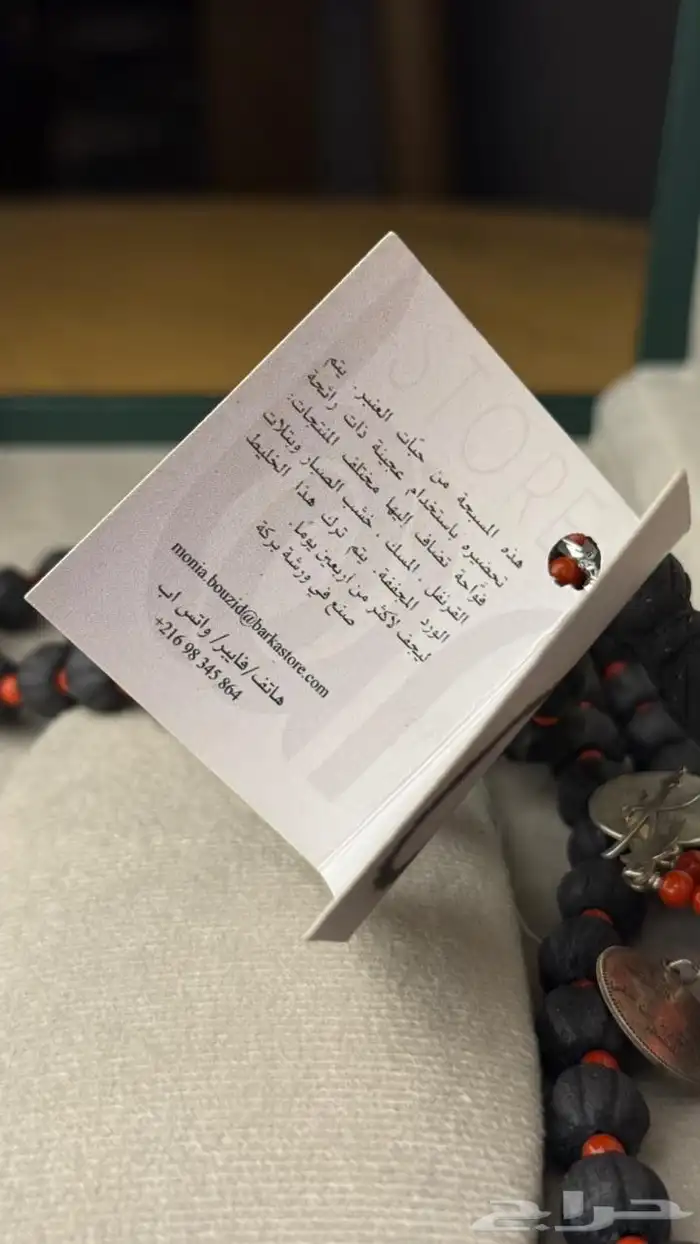 STORE
هذه المسبحة من حبّات العنبر. يتم
تحضيره باستخدام عجينة ذات رائحة
فوّاحة تضاف إليها مختلف المنتجات:
القرنفل ، المسك ، خشب الصبار وبتلات
الورد المجففة. يتم ترك هذا الخليط
ليجف لأكثر من أربعين يوما.
صنع في ورشة بركة
monia.bouzid@barkastore.com
هاتف/فايبر/ واتس اب
+216 98 345 864
حراج